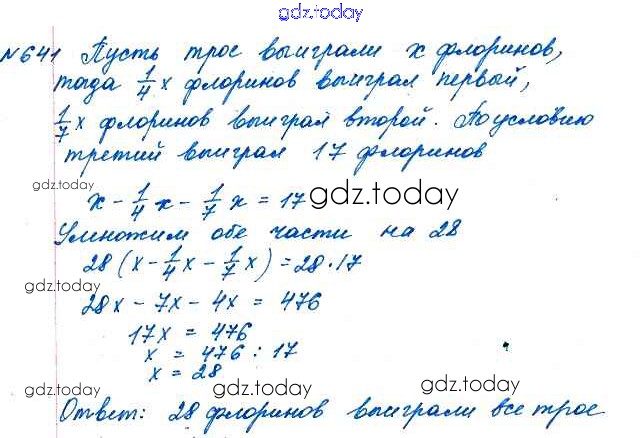 gdz.today
№641 Пусть трое выиграли x флоринов,
тогда 1/4 x флоринов выиграл первый,
1/7 x флоринов выиграл второй. По условию
третий выиграл 17 флоринов
gdz.today
x - 1/4 x - 1/7 x = 17 gdz.today
Умножим обе части на 28
28 (x - 1/4 x - 1/7 x) = 28 · 17
28x - 7x - 4x = 476
17x = 476
x = 476 : 17
x = 28
gdz.today gdz.today gdz.today
Ответ: 28 флоринов выиграли все трое